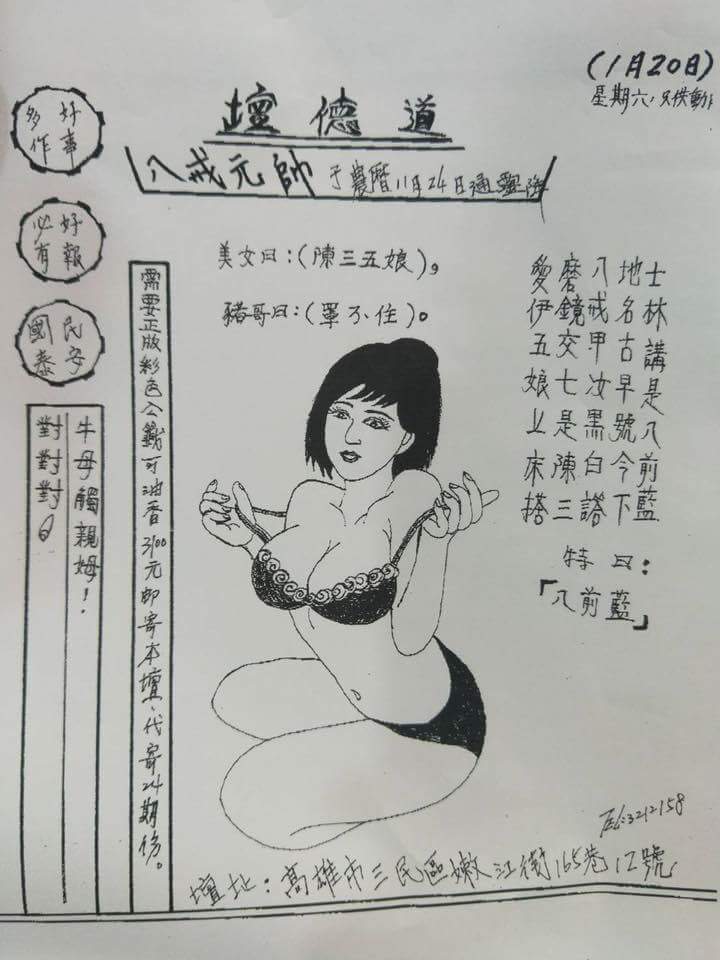 (1月20日)
星期六,只供動
道德壇
八戒元帥于農曆11月24日通靈降
好事
多作
好報
必有
民安
國泰
美女曰:(陳三五娘)。
豬哥曰:(罩不住)。
士林講是八前藍
地名古早號今下
八戒甲汝黑白
磨鏡交七是陳三
愛伊五娘上床搭
特曰:
「八前藍」
需要正版彩色六籤可油香3100元郵寄本壇、代寄24期份。
牛母觸親姆!
對對對
3212158
壇址:高雄市三民區嫩江街165巷12號